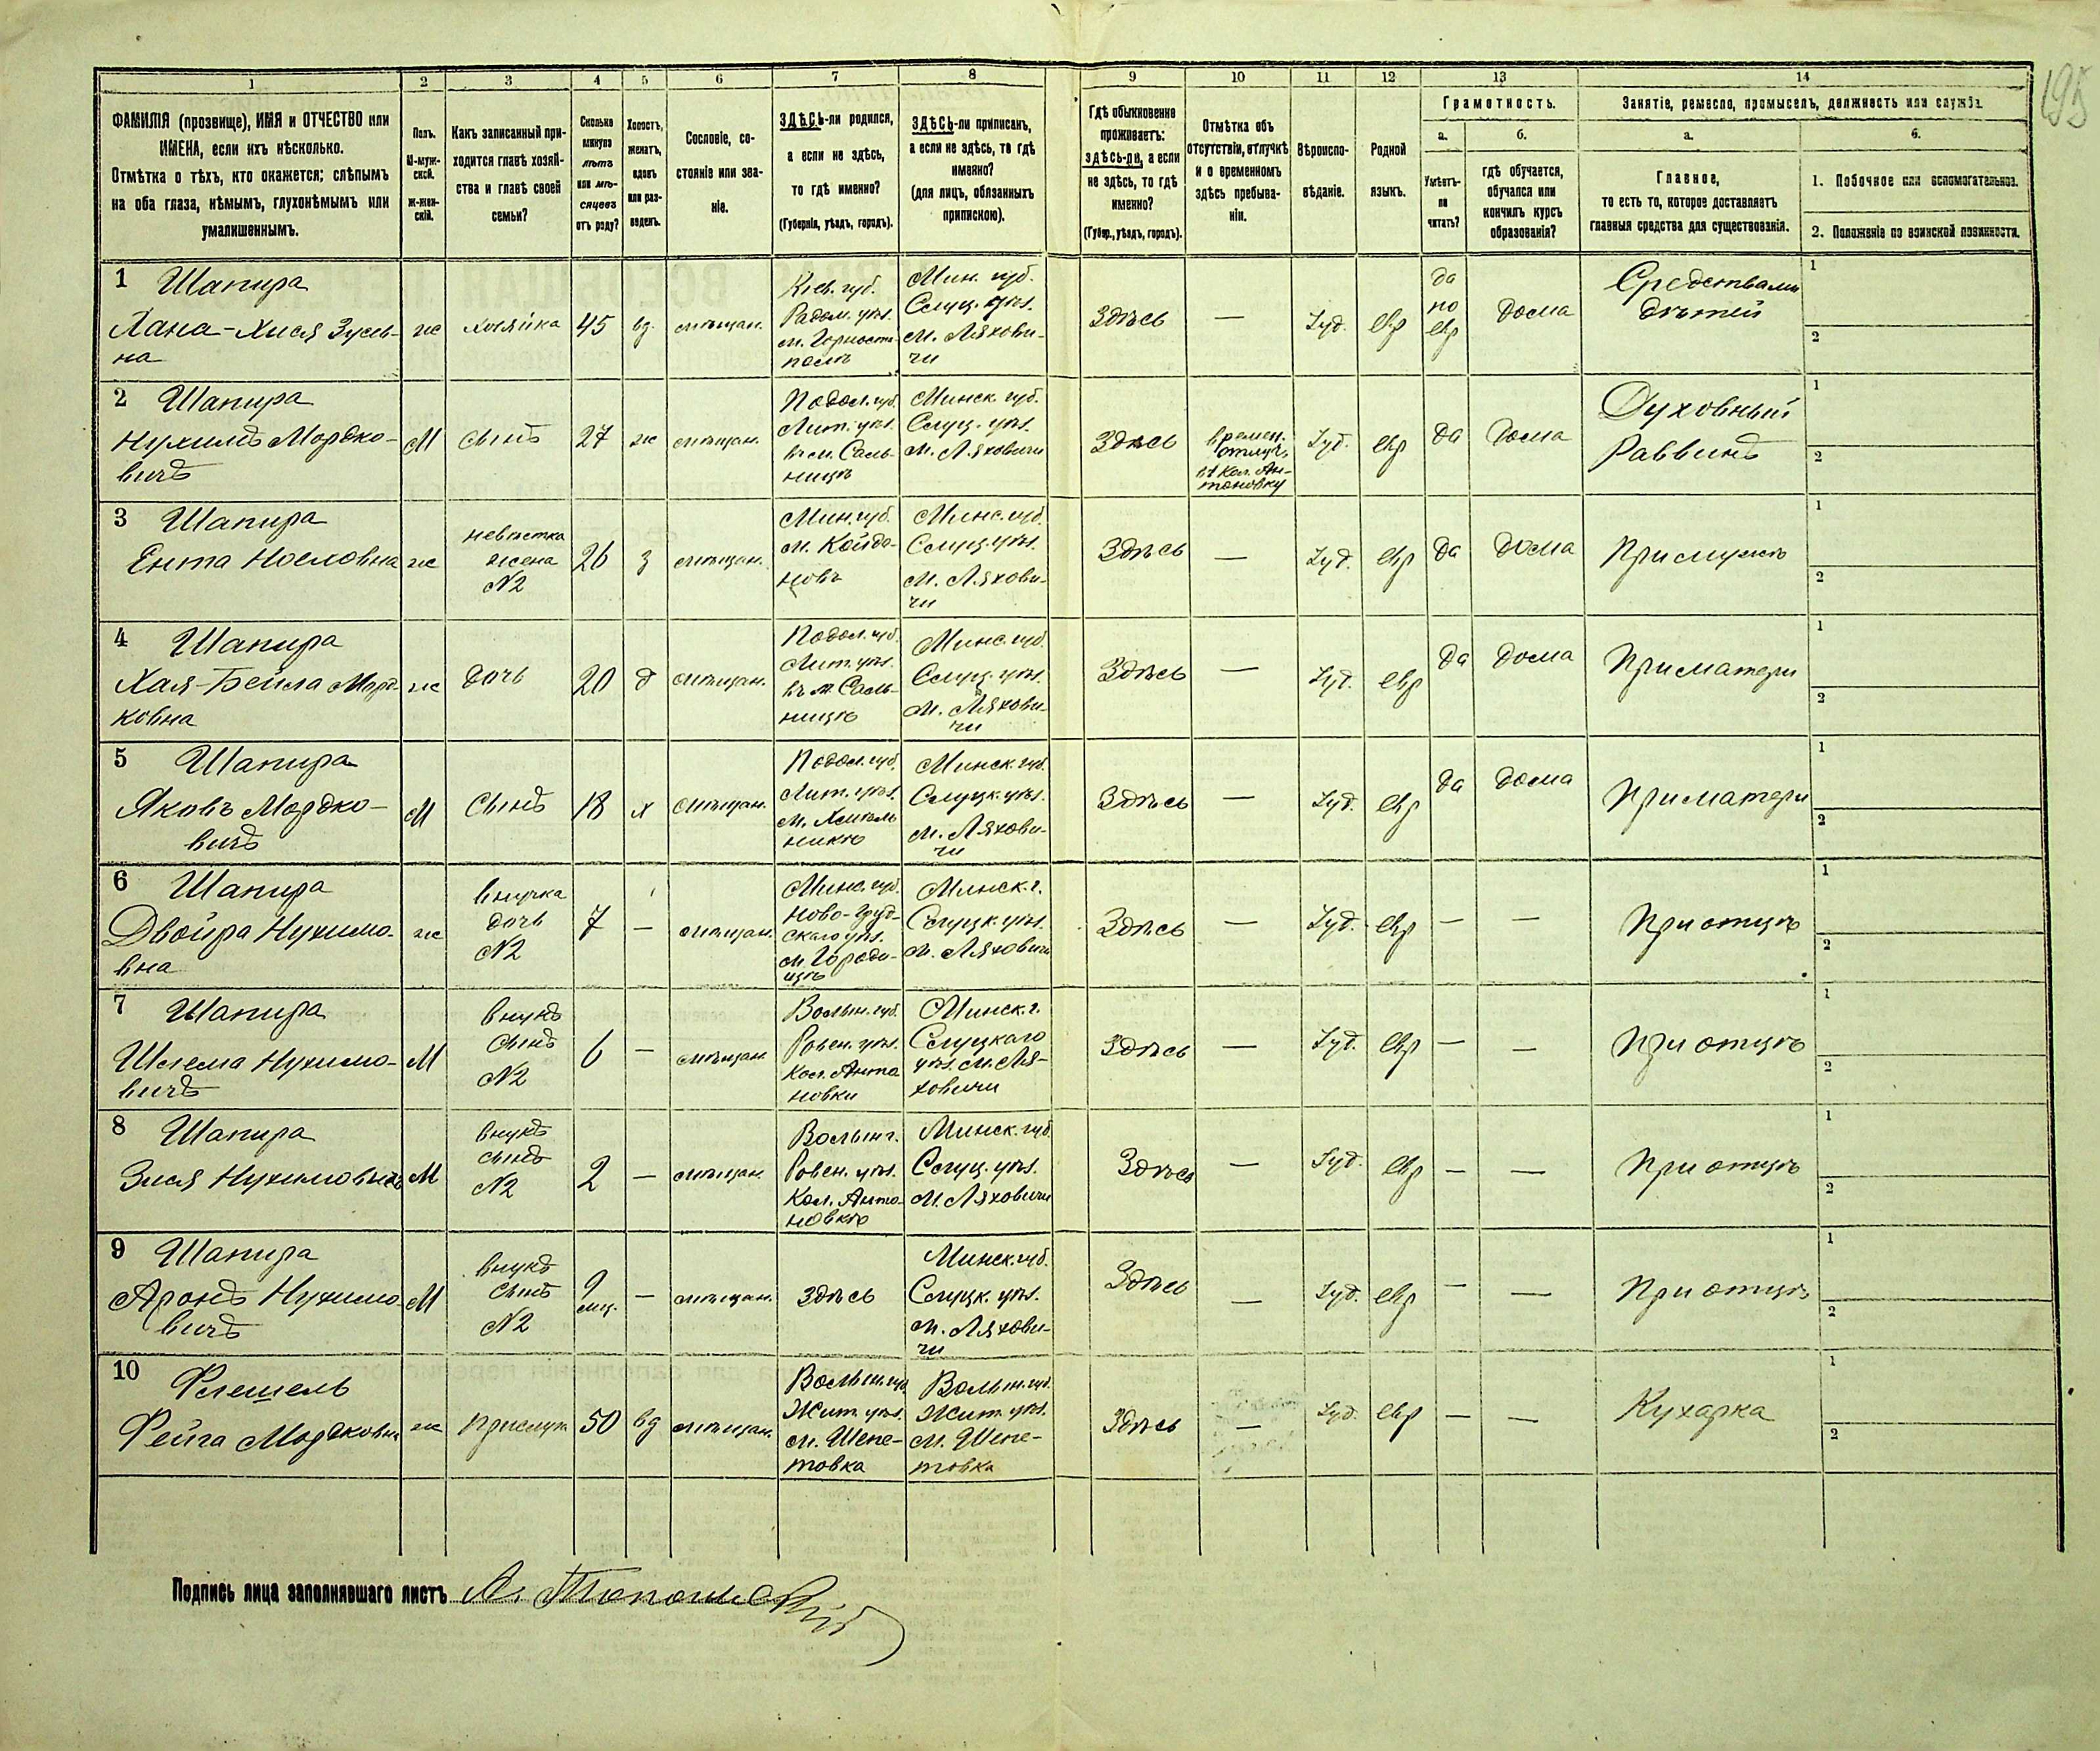 195
1 2 3 4 5 6 7 8 9 10 11 12 13 14
ФАМИЛІЯ (прозвище), ИМЯ и ОТЧЕСТВО или
ИМЕНА, если ихъ нѣсколько.
Отмѣтка о тѣхъ, кто окажется; слѣпымъ
на оба глаза, нѣмымъ, глухонѣмымъ или
умалишеннымъ.
Полъ.
М-муж-
ской.
Ж-жен-
скій.
Какъ записанный при-
ходится главѣ хозяй-
ства и главѣ своей
семьи?
Сколько
минуло
лѣтъ
или мѣ-
сяцевъ
отъ роду?
Холостъ,
женатъ,
вдовъ
или раз-
веденъ.
Сословіе, со-
стояніе или зва-
ніе.
ЗДѢСЬ-ли родился,
а если не здѣсь,
то гдѣ именно?
(Губернія, уѣздъ, городъ).
ЗДѢСЬ-ли приписанъ,
а если не здѣсь, то гдѣ
именно?
(для лицъ, обязанныхъ
припискою).
Гдѣ обыкновенно
проживаетъ:
здѣсь-ли, а если
не здѣсь, то гдѣ
именно?
(Губер., уѣздъ, городъ).
Отмѣтка объ
отсутствіи, отлучкѣ
и о временномъ
здѣсь пребыва-
ніи.
Вѣроиспо-
вѣданіе.
Родной
языкъ.
Грамотность.
а.
Умѣетъ-
ли
читать?
б.
гдѣ обучается,
обучался или
кончилъ курсъ
образованія?
Занятіе, ремесло, промыселъ, должность или служба.
а.
Главное,
то есть то, которое доставляетъ
главныя средства для существованія.
б.
1. Побочное или вспомогательное.
2. Положеніе по воинской повинности.
1 Шапира
Хана-Хися Зусев-
на
ж
хозяйка
45
вд.
мѣщан.
Кіев. губ.
Радом. уѣз.
м. Горносто-
полѣ
Мин. губ.
Слуц. уѣз.
м. Ляхови-
чи
Здѣсь
—
Іуд.
евр
да
по
евр
Дома
Средствами
дѣтей
1
2
2 Шапира
Нухимъ Мордко-
вичъ
М
сынъ
27
ж
мѣщан.
Подол. губ.
Лит. уѣз.
въ м. Саль-
ницѣ
Минск. губ.
Слуц. уѣз.
м. Ляховичи
Здѣсь
времен.
отлуч.
въ кол. Ан-
тоновку
Іуд.
евр
да
Дома
Духовный
Раввинъ
1
2
3 Шапира
Ента Иословна
ж
невѣстка
жена
N2
26
з
мѣщан.
Мин. губ.
м. Койда-
новъ
Минс. губ.
Слуц. уѣз.
м. Ляхови-
чи
Здѣсь
—
Іуд.
евр
да
дома
При мужѣ
1
2
4 Шапира
Хая-Бейла Морд-
ковна
ж
дочь
20
д
мѣщан.
Подол. губ.
Лит. уѣз.
въ м. Саль-
ницѣ
Минс. губ.
Слуц. уѣз.
м. Ляхови-
чи
Здѣсь
—
Іуд.
евр
да
дома
При матери
1
2
5 Шапира
Яковъ Мордко-
вичъ
М
Сынъ
18
х
мѣщан.
Подол. губ.
Лит. уѣз.
м. Хмѣль
никѣ
Минск. губ.
Слуцк. уѣз.
м. Ляхови-
чи
Здѣсь
—
Іуд.
евр
да
дома
При матери
1
2
6 Шапира
Двойра Нухимо-
вна
ж
внучка
дочь
N2
7
—
мѣщан.
Минс. губ.
Ново-Груд-
скаго уѣз.
м. Городи-
щѣ
Минск. г.
Слуцк. уѣз.
м. Ляховичи
Здѣсь
—
Іуд.
евр
—
—
При отцѣ
1
2
7 Шапира
Шлема Нухимо-
вичъ
М
внукъ
сынъ
N2
6
—
мѣщан.
Волын. губ.
Ровен. уѣз.
Кол. Анто
новки
Минск. г.
Слуцкаго
уѣз. м. Ля-
ховичи
Здѣсь
—
Іуд.
евр
—
—
При отцѣ
1
2
8 Шапира
Зися Нухимовичъ
М
внукъ
сынъ
N2
2
—
мѣщан.
Волын г.
Ровен. уѣз.
Кол. Анто-
новкѣ
Минск. губ.
Слуц. уѣз.
м. Ляховичи
Здѣсь
—
Іуд.
евр
—
—
При отцѣ
1
2
9 Шапира
Аронъ Нухимо
вичъ
М
внукъ
сынъ
N2
9
мц.
—
мѣщан.
здѣсь
Минск. губ.
Слуцк. уѣз.
м. Ляхови-
чи
Здѣсь
—
Іуд.
евр
—
—
При отцѣ
1
2
10 Флешель
Фейга Мордковна
ж
прислуж
50
вд
мѣщан.
Волын. губ.
Жит. уѣз.
м. Шепе-
товка
Волын. губ.
Жит. уѣз.
м. Шепе-
товка
Здѣсь
—
Іуд.
евр
—
—
Кухарка
1
2
Подпись лица заполнявшаго листъ А.